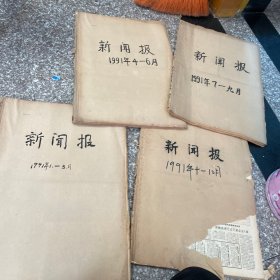 新闻报
1991年4-6月
新闻报
1991年7-九月
新闻报
1991年1-3月
新闻报
1991年十-12月